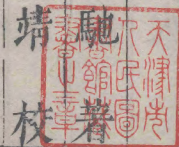 天津市
人民圖
書館藏
書之章
馳著
靖校